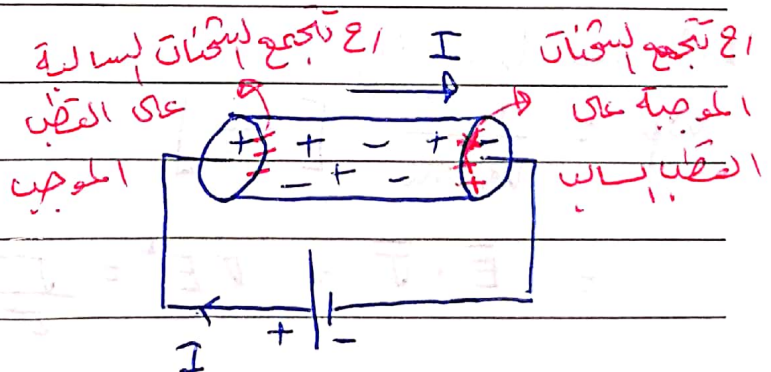 راح تتجمع الشحنات السالبة
على القطب
الموجب
I
راح تتجمع الشحنات
الموجبة على
القطب السالب
+ + - + -
- + - +
I
+ -